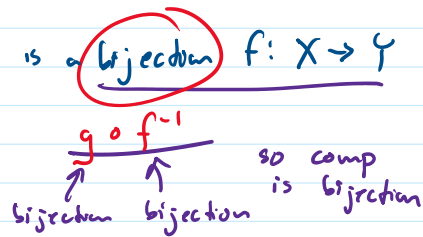 is a bijection f: X → Y
g ∘ f⁻¹
so comp
is bijection
bijection bijection